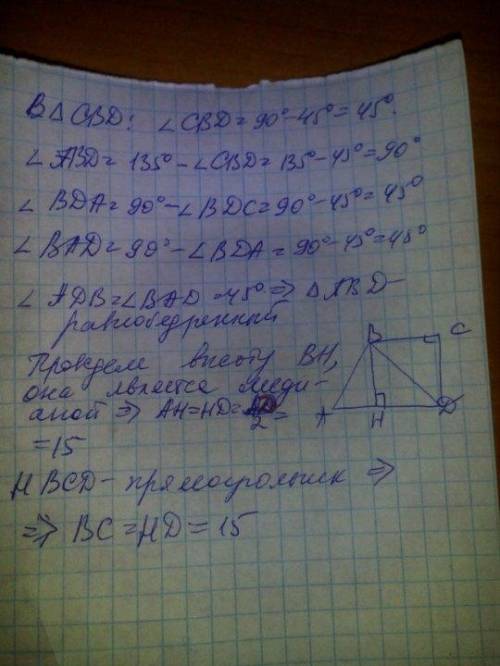 В △ CBD: ∠CBD = 90° - 45° = 45°.
∠ ABD = 135° - ∠CBD = 135° - 45° = 90°
∠ BDA = 90° - ∠BDC = 90° - 45° = 45°
∠ BAD = 90° - ∠BDA = 90° - 45° = 45°
∠ ADB = ∠BAD = 45° ⇒ △ABD -
равнобедренный
Проведем высоту BH,
она является меди-
аной ⇒ AH = HD = AD/2 =
= 15
HBCD - прямоугольник ⇒
⇒ BC = HD = 15
B C
A H D